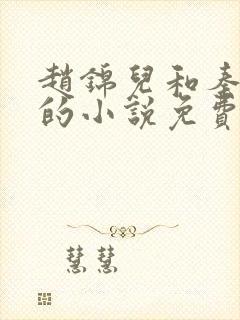 趙錦兒和秦
的小說免費
慧慧